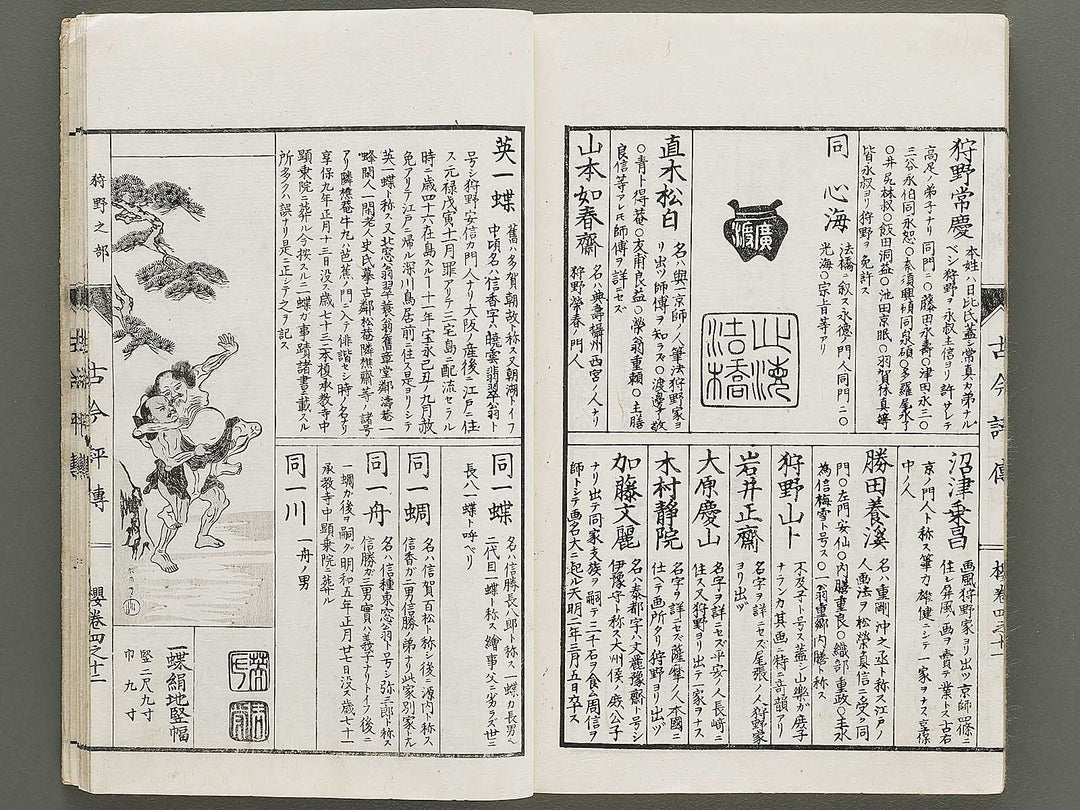 狩野常慶
本姓ハ日比氏蓋シ常真カ弟ナルベシ狩野ヲ永叔主信ヨリ許サレテ
高足ノ弟子ナリ 同門ニ〇藤田永壽〇津田永三〇
三谷永伯同永恕〇
〇井尻林叔〇飯田洞益〇池田京眠〇羽賀保真等
皆永叔ヨリ狩野ヲ免許ス
同 心海
法橋ニ叙ス永徳ノ門人同門ニ〇
光海〇宗旨等アリ
廣渡
心海
法橋
直木松白
名ハ與一京師ノ人筆法狩野家ヨ
リ出ツ師傳ヲ知ラズ〇渡邊
〇青ト得菴〇友甫良益〇榮翁重頼〇主膳
良信等アレ氏師傳ヲ詳ニセズ
山本如春齋
名ハ典壽攝州西宮ノ人ナリ
狩野榮春ノ門人
沼津乗昌
画風狩野家ヨリ出ツ京師四條ニ
住シ屏風画ヲ賣テ業トス古石
京ノ門人ト称ス筆力雄健ニシテ一家ヲナス享保
中ノ人
勝田養溪
名ハ重剛沖之丞ト称ス江戸ノ
人画法ヲ松榮真信ニ受ク同
門ニ〇左門安仙〇内膳重良〇織部重政〇主水
為信梅雪ト号ス〇一翁重郷内膳ト称ス
狩野山卜
不及子ト号ス蓋シ山樂カ庶子
ナランカ其画ニ特ニ奇韻アリ
岩井正齋
名字ヲ詳ニセズ尾張ノ人狩野家
ヨリ出ツ
大原慶山
名字ヲ詳ニセズ平安ノ人長崎ニ
住ス又狩野ヨリ出ツテ一家ヲナス
木村静院
名字ヲ詳ニセズ薩摩ノ人本國ニ
仕ヘテ画所タリ狩野ヨリ出ツ
加藤文麗
名ハ泰都字ハ文麗豫齋ト号シ
伊豫守ト称ス大州侯ノ庶公子
ナリ出テ同家支族ヲ嗣テ三千石ヲ食ム周信ヲ
師トシテ画名大ニ起ル天明二年三月五日卒ス
古今評傳
櫻巻四之十一
英一蝶
舊ハ多賀朝故ト称ス又朝湖トイフ
中頃名ハ信香字ハ暁雲翡翠翁ト
号シ狩野安信カ門人ナリ大阪ノ産後ニ江戸ニ住
ス元禄戊寅十一月罪アリテ三宅島ニ配流セラル
時ニ歳四十六在島スル丁十一年宝永己丑ノ九月赦
免アリテ江戸ニ帰ル深川島居前ニ住ス是ヨリシテ
英一蝶ト称ス又北窓翁翠蓑翁舊草堂鄰濤菴一
蜂閑人一閑老人史氏摹古鄰松菴隣樵齋等ノ諸号
アリ隣樵菴牛丸ハ芭蕉ノ門ニ入テ俳諧セシ時ノ名ナリ
享保九年正月十三日没ス歳七十三二本榎承教寺中
顕乗院ニ葬ル今按スルニ一蝶カ事蹟諸書ニ載スル
所多クハ誤ナリ是ニ正シテ之ヲ記ス
同一蝶
名ハ信勝長八郎ト称ス一蝶カ長男ハ
二代目一蝶ト称ス繪事父ニ劣ラズ世ニ
長八一蝶ト呼ベリ
同一蜩
名ハ信賀百松ト称シ後ニ源内ト称ス
信香カ二男信勝ノ弟ナリ此家別家トナル
同一舟
名ハ信種東窓翁ト号シ弥三郎ト称ス
信勝カ三男實ハ義子ナリトイフ後ニ
一蜩カ後ヲ嗣グ明和五年正月廿七日没ス歳七十一
承教寺中顕乗院ニ葬ル
同一川
一舟ノ男
一蝶絹地竪幅
竪二尺九寸
巾 九寸
狩野之部
古今評傳
櫻巻四之十二